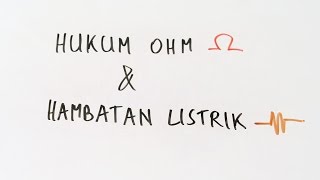 HUKUM OHM Ω
&
HAMBATAN LISTRIK